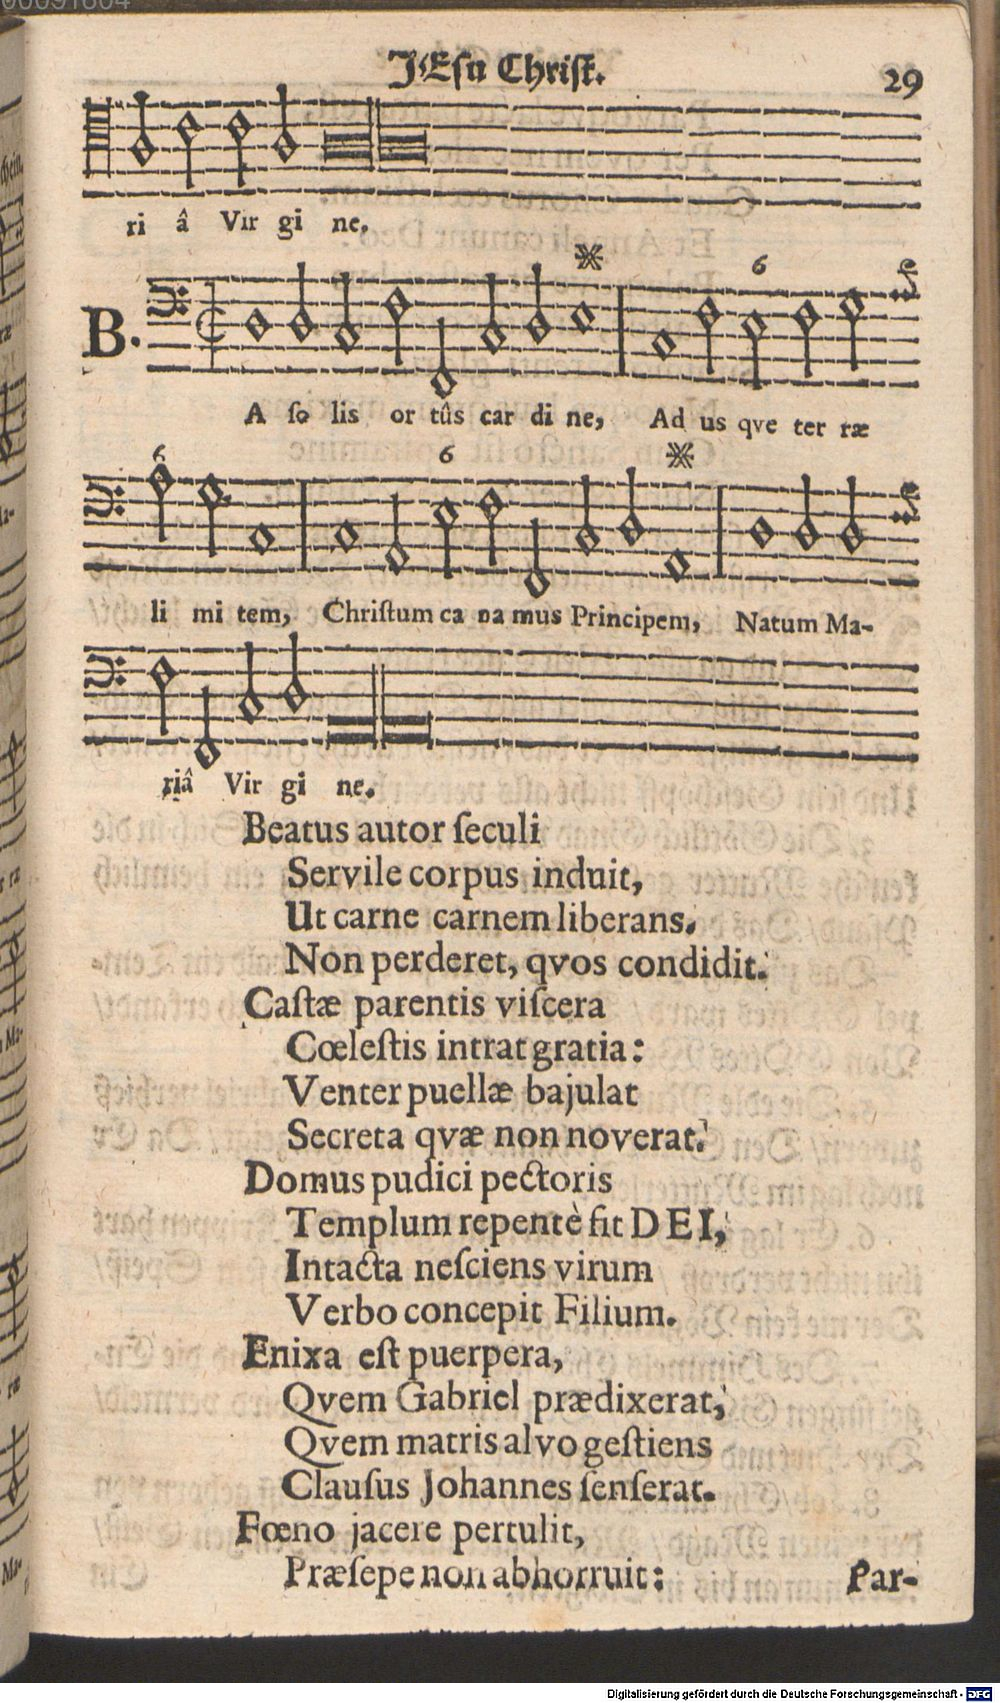 JEsu Christ.
29
ri â Vir gi ne.
6
B.
A ſo lis or tûs car di ne, Ad us qve ter ræ
6 6
li mi tem, Chriſtum ca na mus Principem, Natum Ma-
riâ Vir gi ne.
Beatus autor ſeculi
Servile corpus induit,
Ut carne carnem liberans.
Non perderet, qvos condidit.
Caſtæ parentis viſcera
Cœleſtis intrat gratia:
Venter puellæ bajulat
Secreta qvæ non noverat.
Domus pudici pectoris
Templum repentè fit DEI,
Intacta neſciens virum
Verbo concepit Filium.
Enixa eſt puerpera,
Qvem Gabriel prædixerat,
Qvem matris alvo geſtiens
Clauſus Johannes ſenſerat.
Fœno jacere pertulit,
Præſepe non abhorruit:
Par-
Digitalisierung gefördert durch die Deutsche Forschungsgemeinschaft - DFG